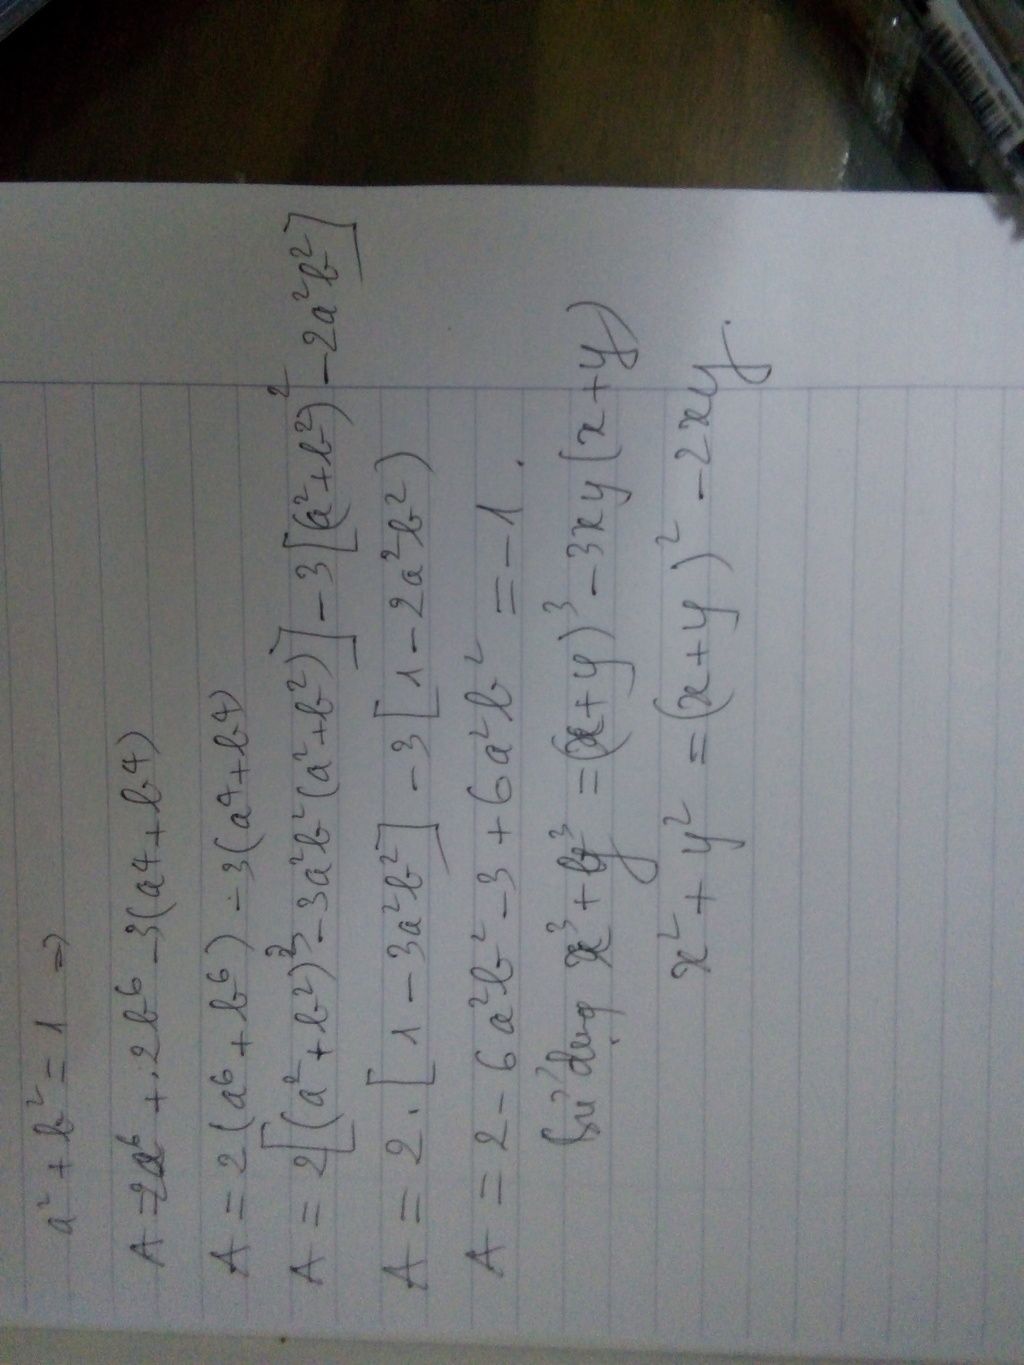 a² + b² = 1 ⇒
A = 2a⁶ + 2b⁶ - 3(a⁴ + b⁴)
A = 2(a⁶ + b⁶) - 3(a⁴ + b⁴)
A = 2[(a² + b²)³ - 3a²b²(a² + b²)] - 3[(a² + b²)² - 2a²b²]
A = 2.[1 - 3a²b²] - 3[1 - 2a²b²)
A = 2 - 6a²b² - 3 + 6a²b² = -1.
Sử dụng x³ + y³ = (x + y)³ - 3xy(x + y)
x² + y² = (x + y)² - 2xy.